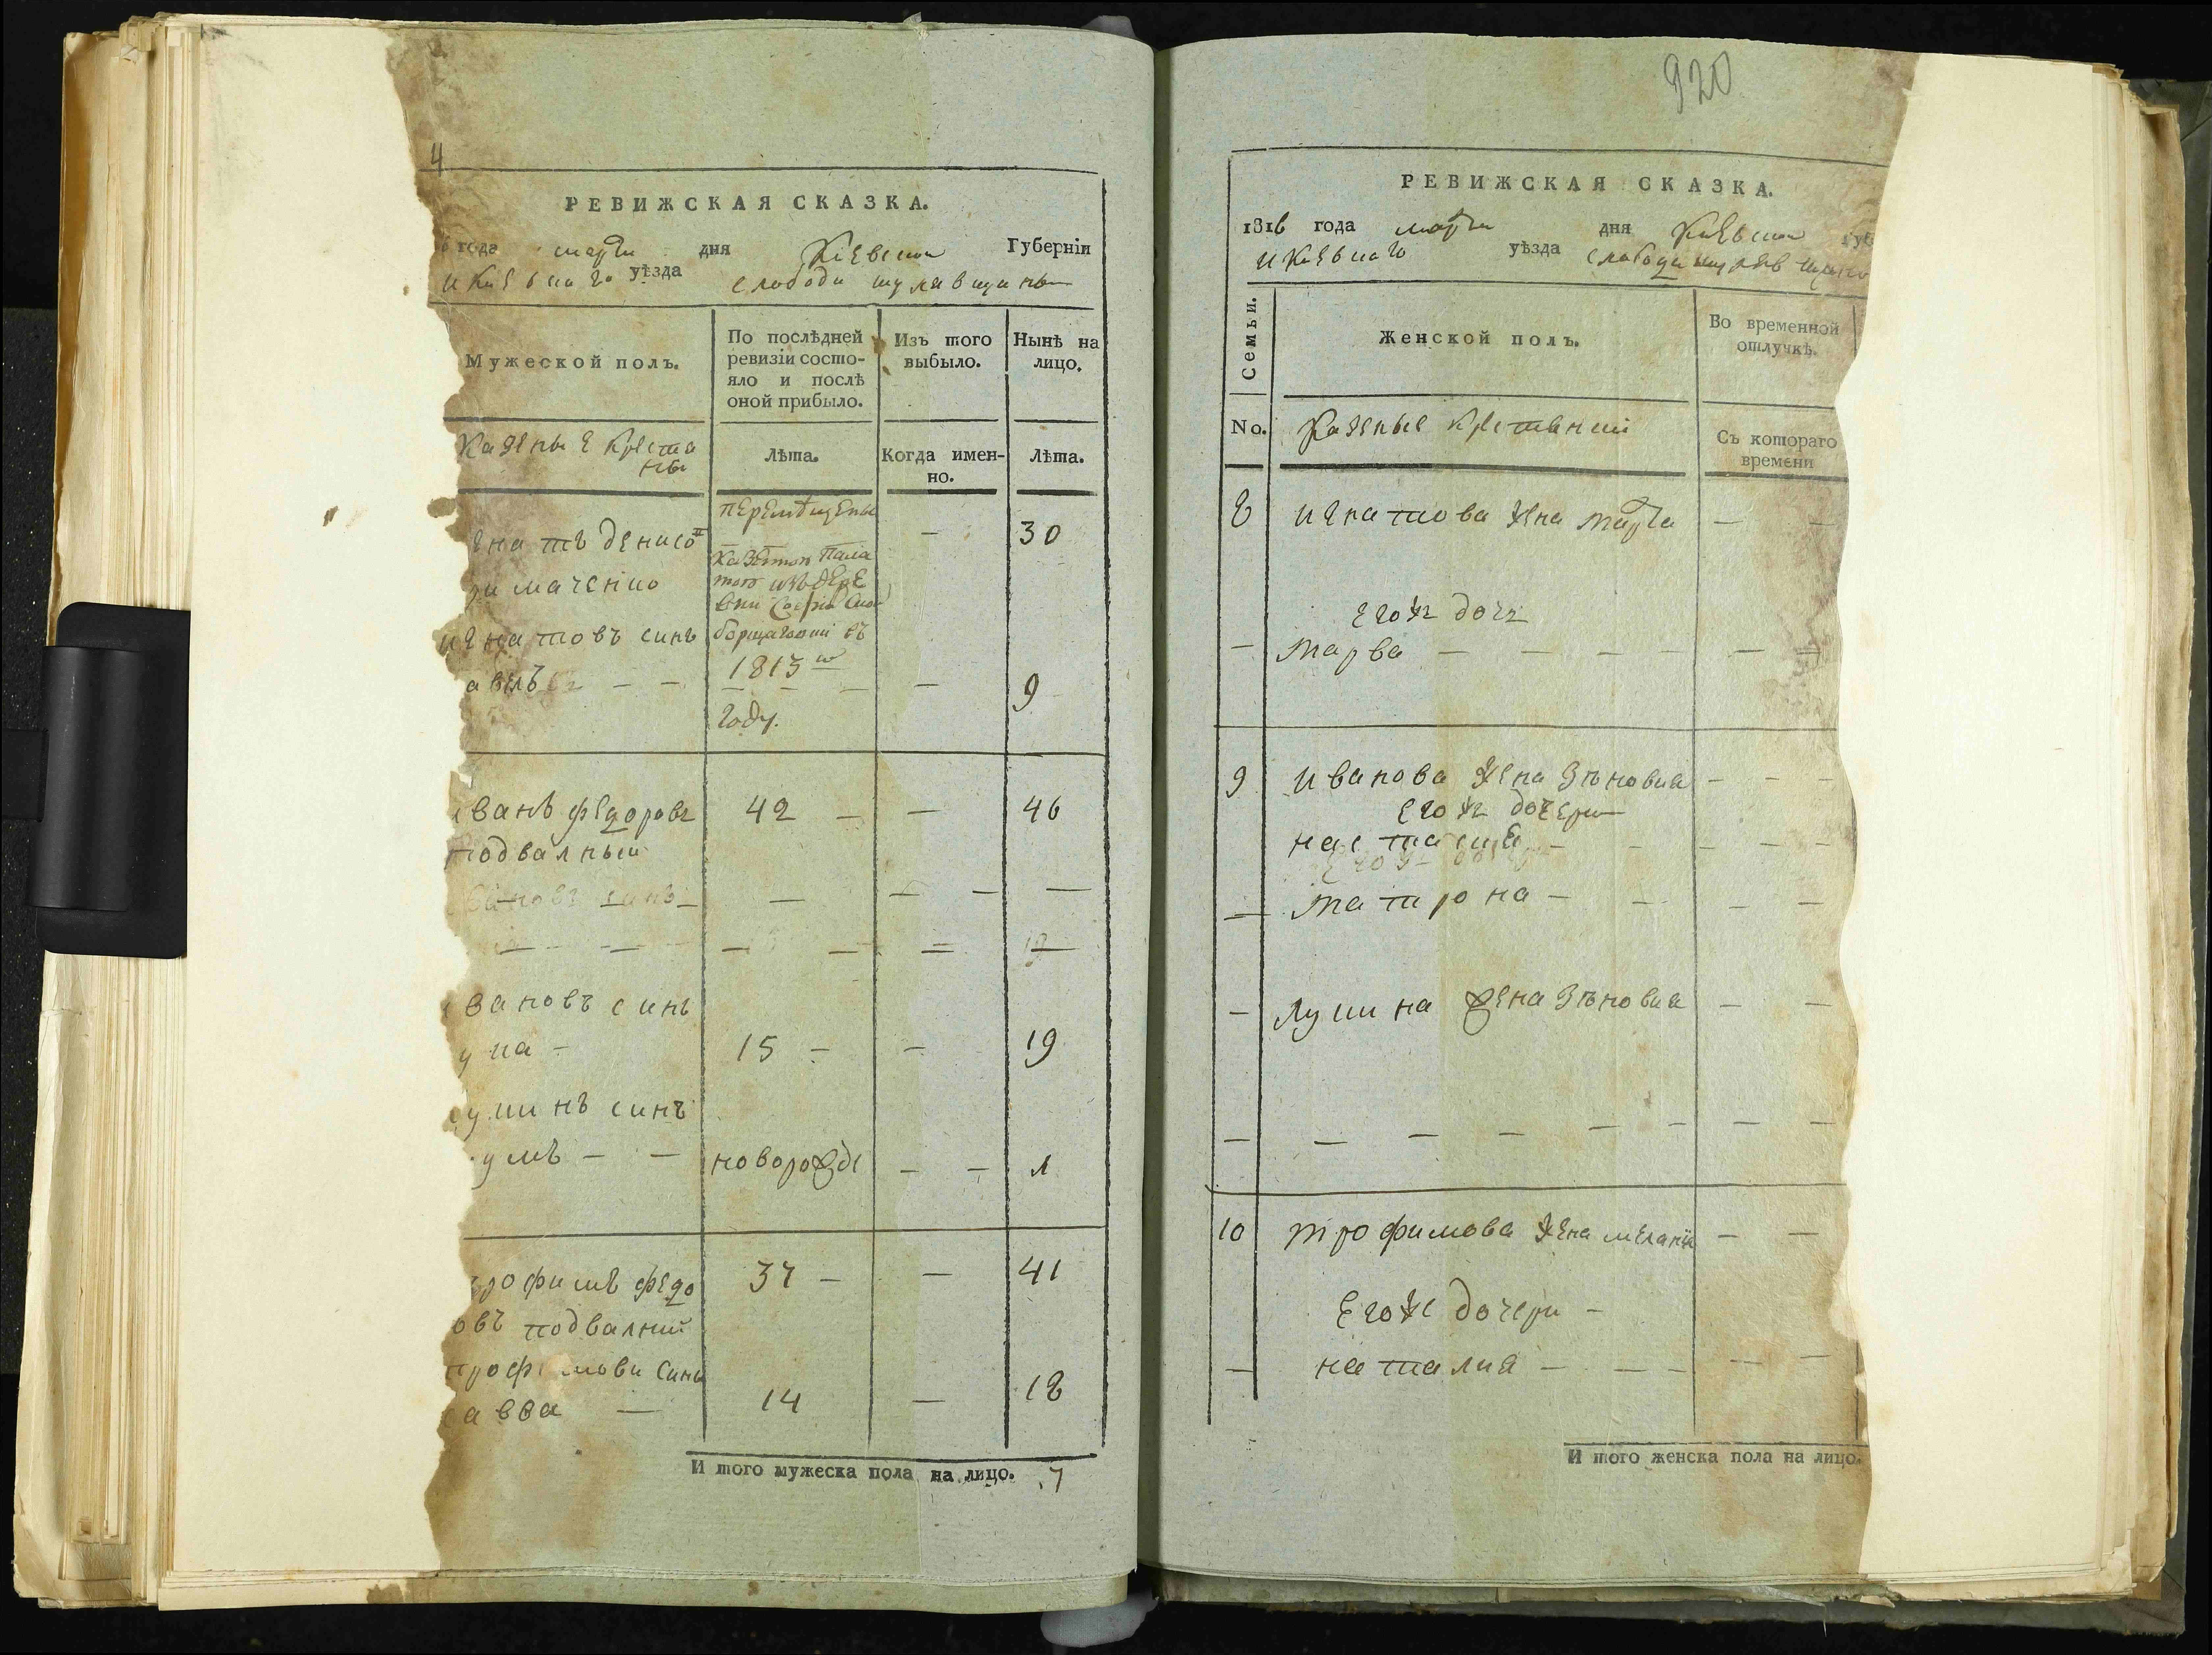 4
РЕВИЖСКАЯ СКАЗКА.
года марта дня Киевской Губернїи
и Киевнаго уѣзда слободи шулявщини
Мужеской полъ.
По послѣдней ревизїи состо-
яло и послѣ
оной прибыло.
Изъ того
выбыло.
Нынѣ на
лицо.
Казеные креста
не
Лѣта.
Когда имен-
но.
Лѣта.
гнатъ денисо
маченко
перемѣщены
казеной пала
той изъ дере
вни
борщаговки въ
1813 го
году.
— 30
игнатовъ синъ
— — — 9
иванъ федоровъ
42 — — 46
подвалный
вановъ синъ — — — — —
— — — — — —
вановъ синъ
ука — 15 — — 19
укинъ синъ
умъ — — новорожде — — 1
рофимъ федо
37 — — 41
овъ подвалний
трофимови сини
авва — 14 — 18
И того мужеска пола на лицо. 7
920
РЕВИЖСКАЯ СКАЗКА.
1816 года марта дня Киевской губ
и Киевнаго уѣзда слободи
Семьи.
Женской полъ.
Во временной
отлучкѣ.
No.
Казеные крестяне
Съ котораго
времени
8 игнатова жена марта — —
его жъ дочъ
— марва — — — — — —
9 иванова жена зѣновия — — —
его жъ дочери
настасия — — — — —
— матрона — — — —
— лукина жена зѣновия — —
— — — — — — — —
10 трофимова жена мелания — —
его же дочери —
— наталия — — — — —
И того женска пола на лицо.